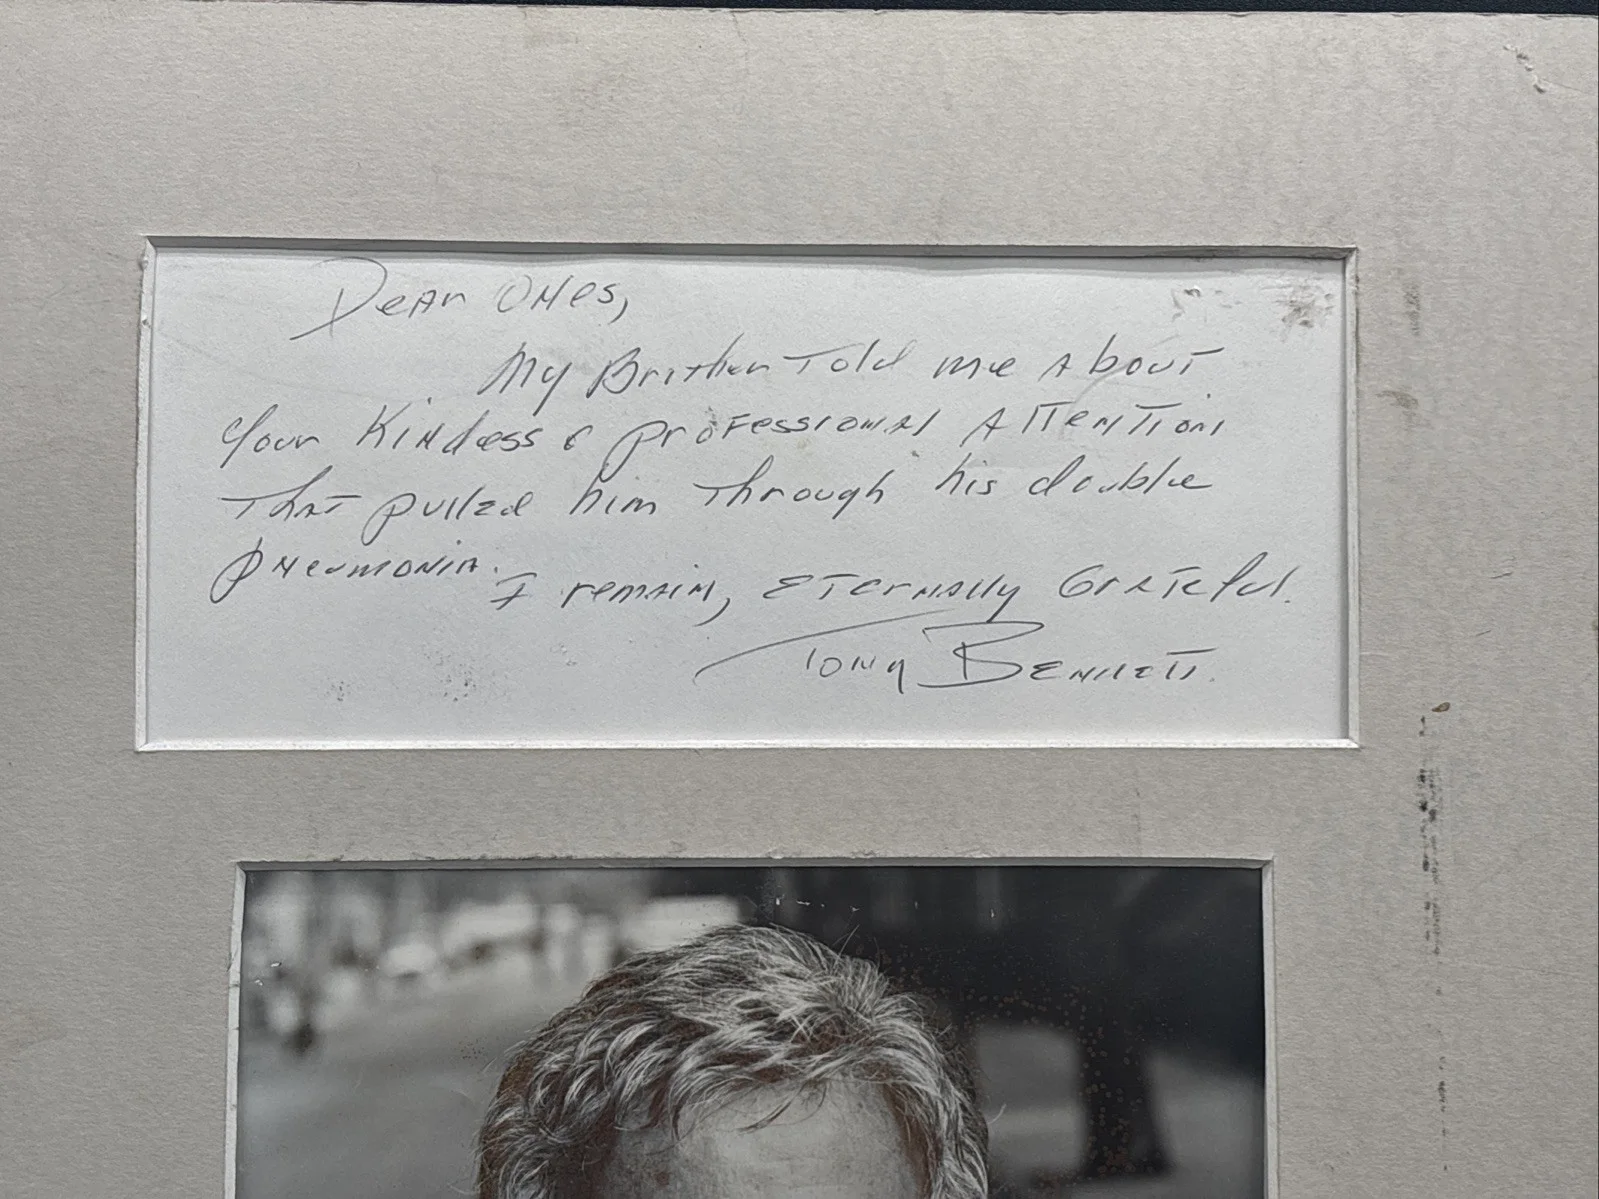 Dear Ones,
My Brother Told me About
Your Kindess & professional Attention
That pulled him Through his double
pneumonia.
I remain, Eternally Grateful.
Tony Bennett.